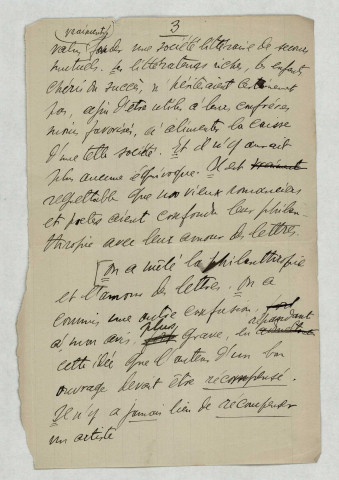 3
vraiment
valu fonder une société littéraire de secours
mutuels. Les littérateurs riches, les enfants
chéris du succès, n'hésiteraient certainement
pas, afin d'être utile à leurs confrères
moins favorisés, à alimenter la caisse
d'une telle société. Et il n'y aurait
plus aucune équivoque. Il est vraiment
regrettable que nos vieux romanciers
et poètes aient confondu leur philan-
thropie avec leur amour des lettres.
[On a mêlé la philanthropie
et l'amour des lettres. On a
commis une autre confusion,
à mon avis, plus grave, en répandant
cette idée que l'auteur d'un bon
ouvrage devait être récompensé.
Il n'y a jamais lieu de récompenser
un artiste